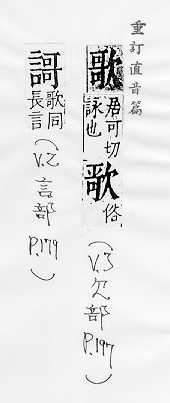 重訂直音篇
歌 君可切
詠也
歌 俗
(V.3 欠部 P.197)
謌 歌同
長言
(V.2 言部 P.179)